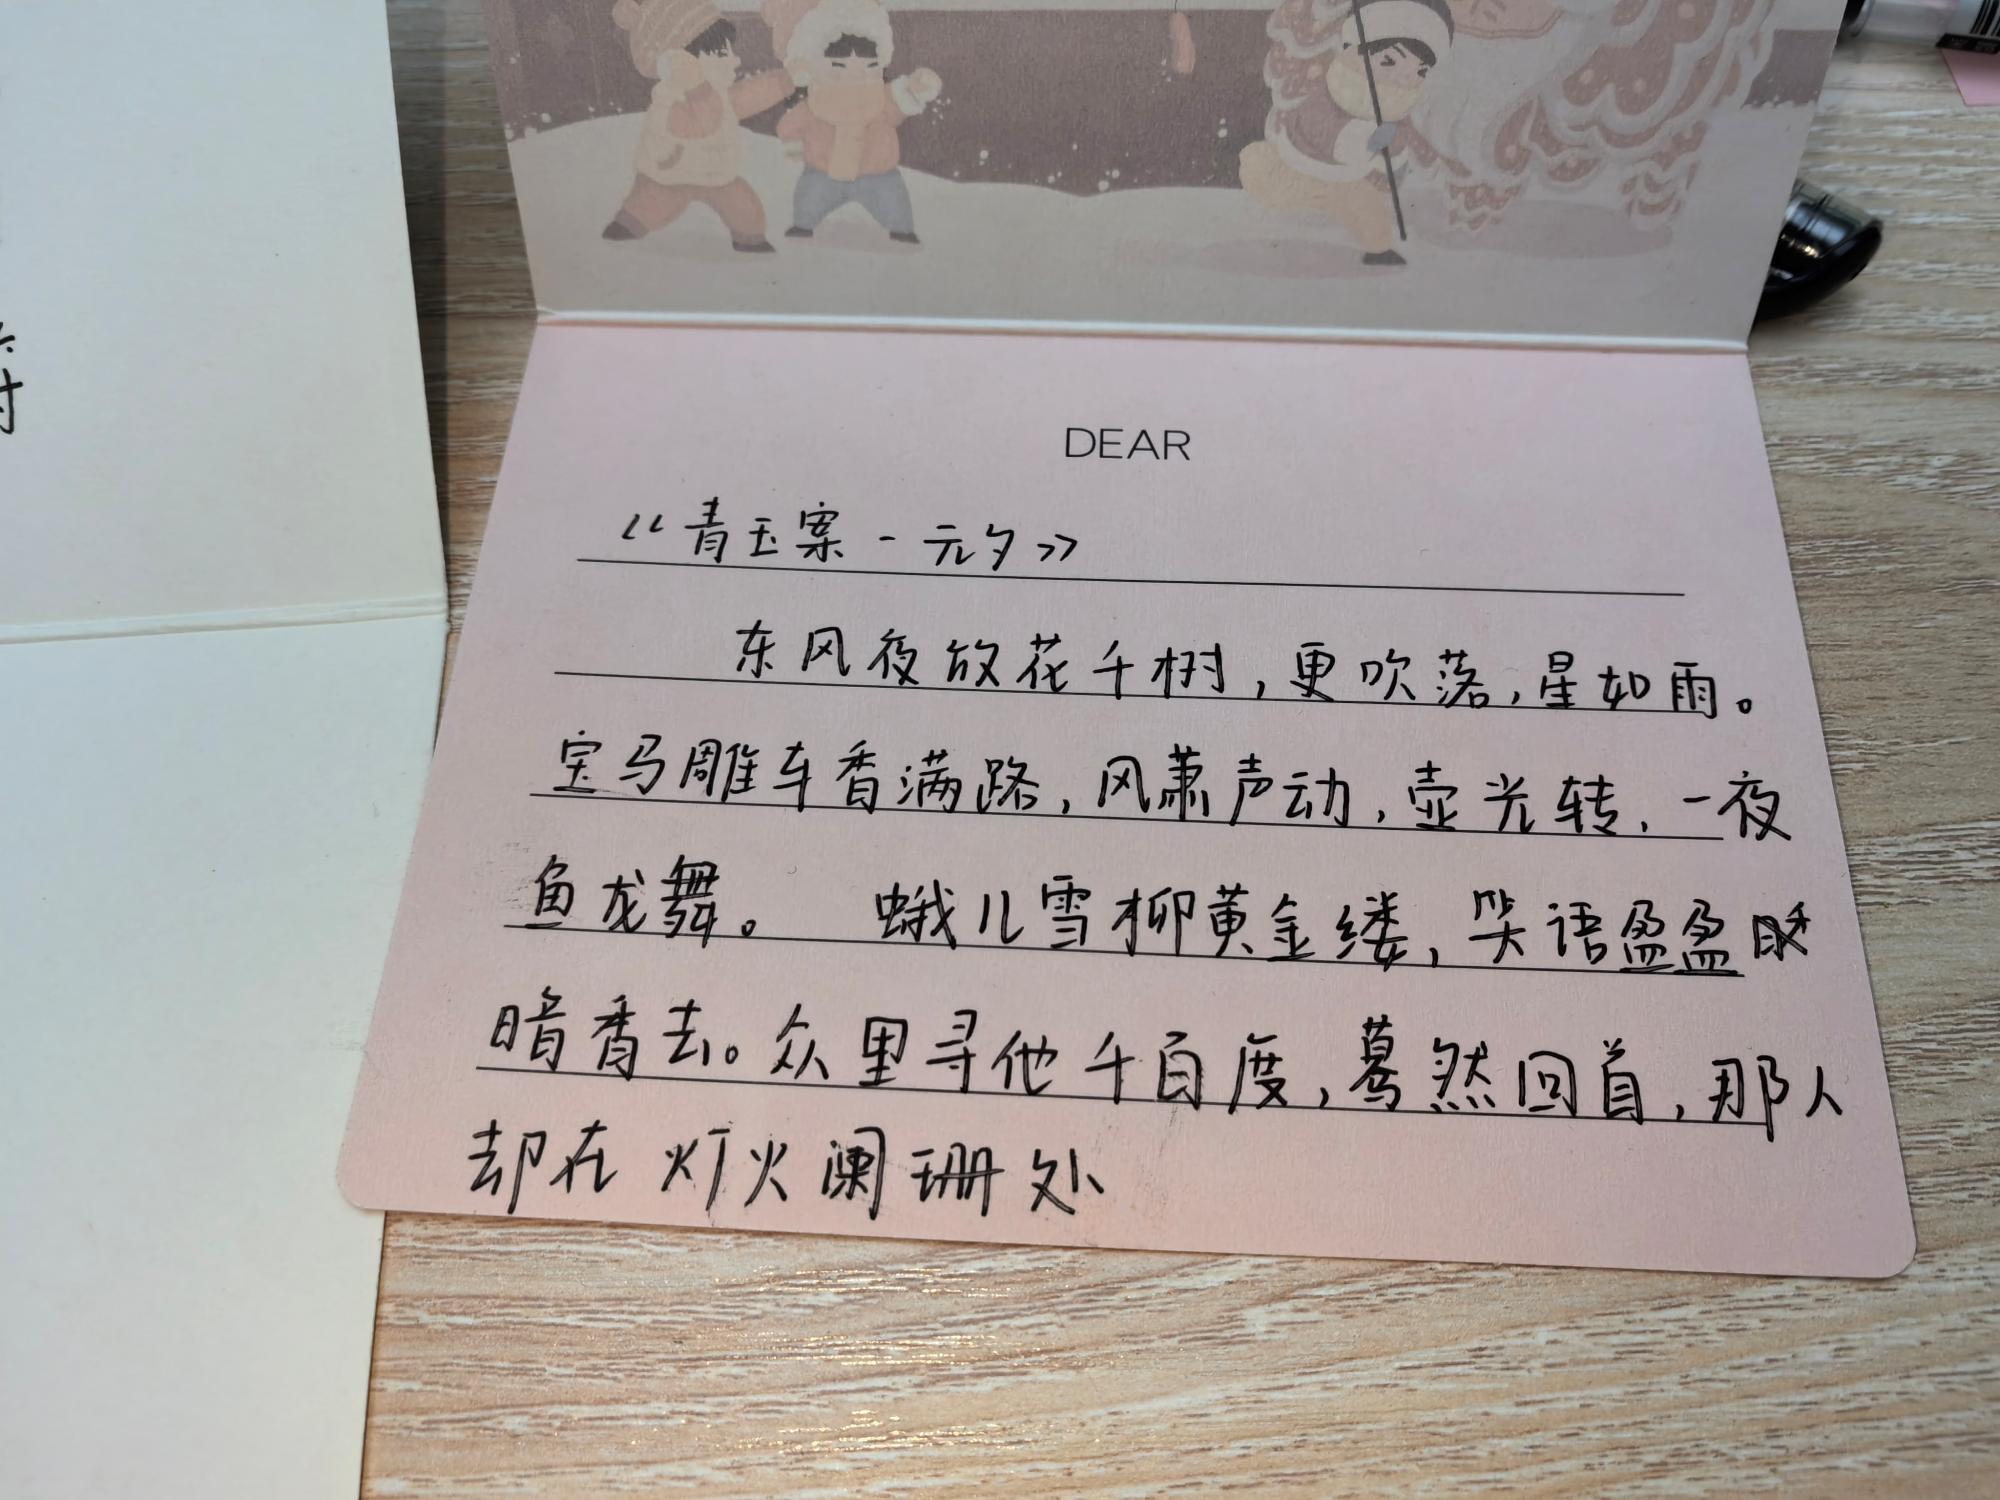 DEAR
《青玉案-元夕》
东风夜放花千树,更吹落,星如雨。
宝马雕车香满路,风萧声动,壶光转,一夜
鱼龙舞。 蛾儿雪柳黄金缕,笑语盈盈
暗香去。众里寻他千百度,蓦然回首,那人
却在灯火阑珊处